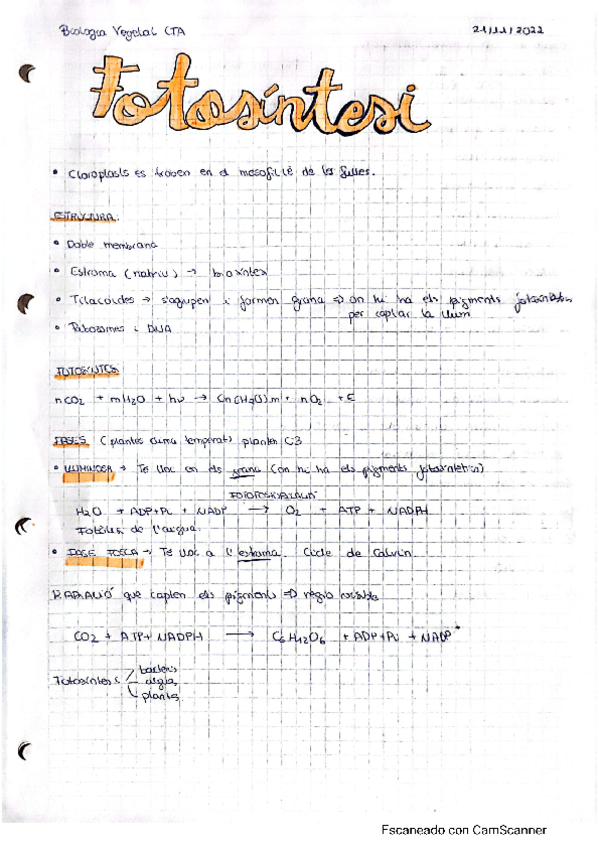 Biologia Vegetal CTA 21/11/2022
Fotosíntesi
• Cloroplasts es troben en el mesofil·lè de les fulles.
ESTRUCTURA.
• Doble membrana
• Estroma (matriu) → biosíntesi
• Tilacoides → s'agrupen i formen grana ⇒ on hi ha els pigments fotosintètics
per captar la llum
• Ribosomes i DNA
FOTOSÍNTESI
nCO2 + mH2O + hν → Cn(H2O)m + nO2 + E
FASES (plantes clima temperat) plantes C3
• LLUMINOSA → Té lloc en els grana (on hi ha els pigments fotosintètics)
FOTOFOSFORILACIÓ
H2O + ADP+Pi + NADP → O2 + ATP + NADPH
Fotòlisi de l'aigua.
• FASE FOSCA → Té lloc a l'estroma. Cicle de Calvin.
RADIACIÓ que capten els pigments ⇒ regió visible
CO2 + ATP + NADPH → C6H12O6 + ADP+Pi + NADP+
Fotosíntesi bacteris
algia,
plantes.
Escaneado con CamScanner